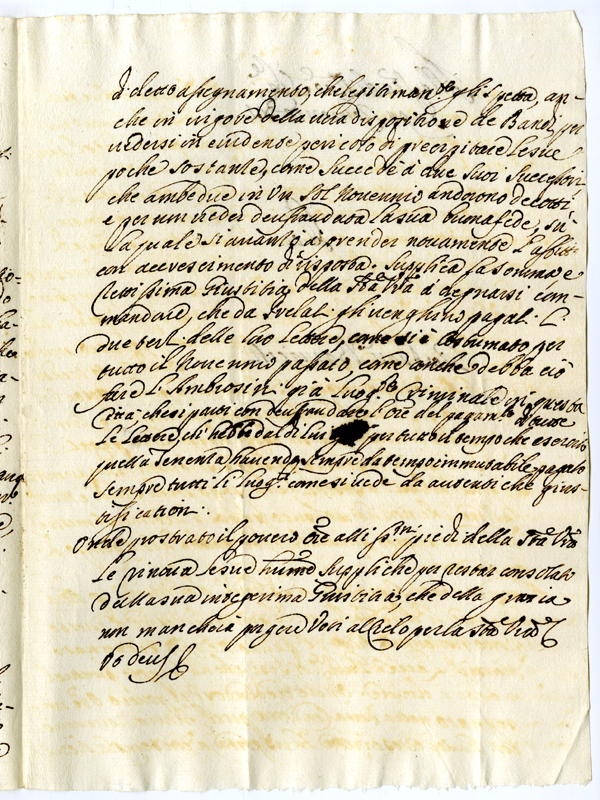 di detto assegnamento, che legitimam.te gli spetta, an-
che in vigore della una disposizione de Bandi, per
vedersi in evidense pericolo di precipitare le sue
poche sostanze, come succede à due suoi successori
che ambedue in un sol Novennio andorono decotti
e per un veder deufraudata la sua buona fede, su
la quale si avanzò à prender novamente l'affitto
con accrescimento di risposta. Supplica la somma, e
rettissima Giustitia della Stra Vra à degnarsi com-
mandare, che da Prelat. gli venghino pagat. L.
due bert. delle loro Lettere, come si è costumato per
tutto il Novennio passato, come anche debba ciò
fare l'Ambrosini già Luog.te Criminale in questa
Città, che si partì con deufraudare l'Ore del pagam.to di tutte
le Lettere, ch' hebbe dal di lui per tutto il tempo che esercitò
quella Tenenza havendo sempre da tempo immutabile pagato
sempre tutti li Luog.ti come si vede da autentiche gius-
tification.
Onde prostrato il povero Ore alli SS.mi piedi della Stra Vra
Le rinova le sue humme suppliche per restar consolato
dalla sua integerrima Giustitia, che della gratia
non mancherà porgere Voti al Cielo per la Stra Vra
Vt deus